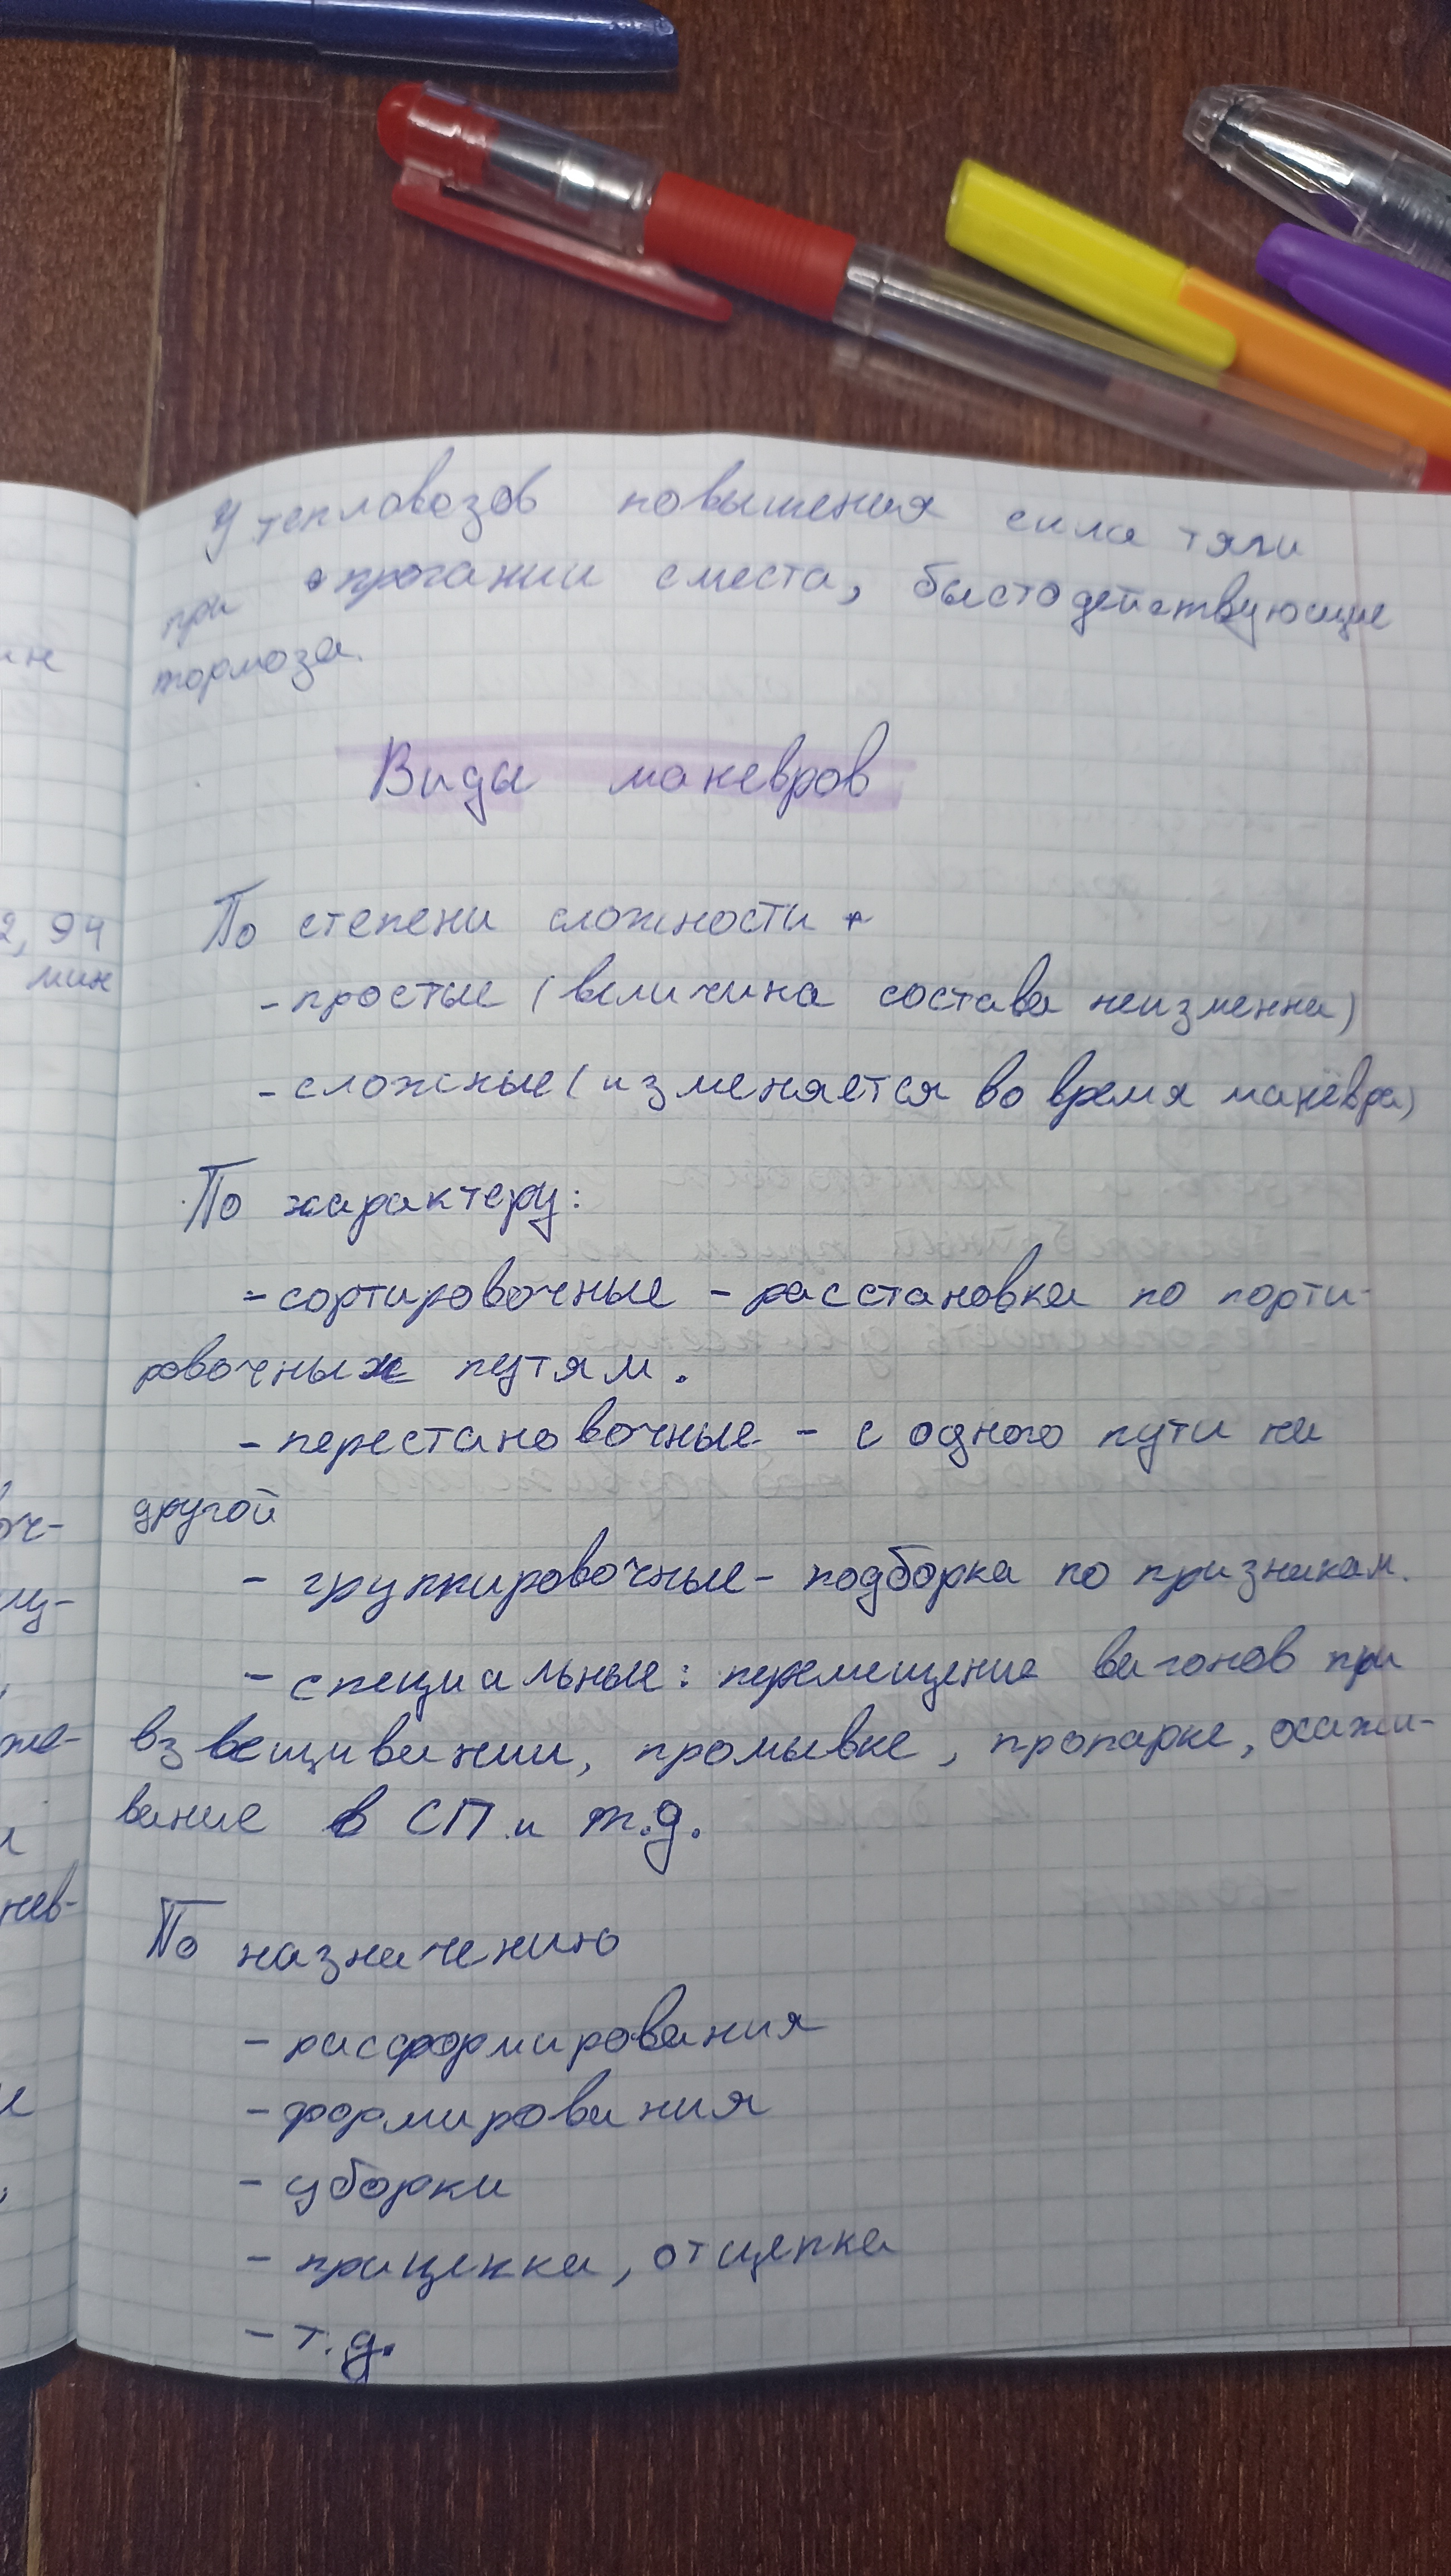 У тепловозов повышения сила тяги
при трогании сместа, быстодействующие
тормоза.
Виды маневров
По степени сложности
- простые (величина состава неизменна)
- сложные (изменяется во время манёвра)
По характеру:
- сортировочные - расстановка по сорти-
ровочных путям.
- перестановочные - с одного пути на
другой
- группировочные - подборка по признакам.
- специальные: перемещение вагонов при
взвешивании, промывке, пропарке, осажи-
вание в СП и т.д.
По назначению
- рассформирования
- формирования
- уборки
- прицепка, отцепка
- т.д.
2, 94
мин
оч-
лу-
же-
нев-